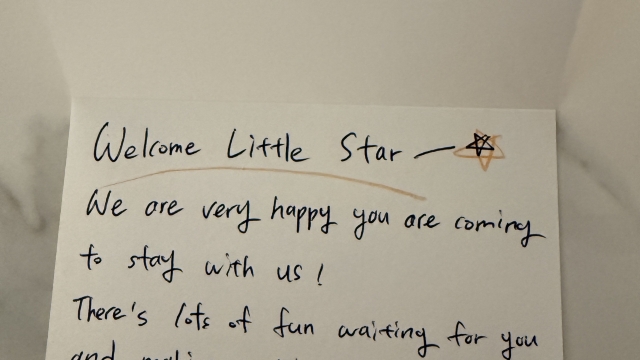 Welcome Little Star —
We are very happy you are coming
to stay with us!
There's lots of fun waiting for you
and